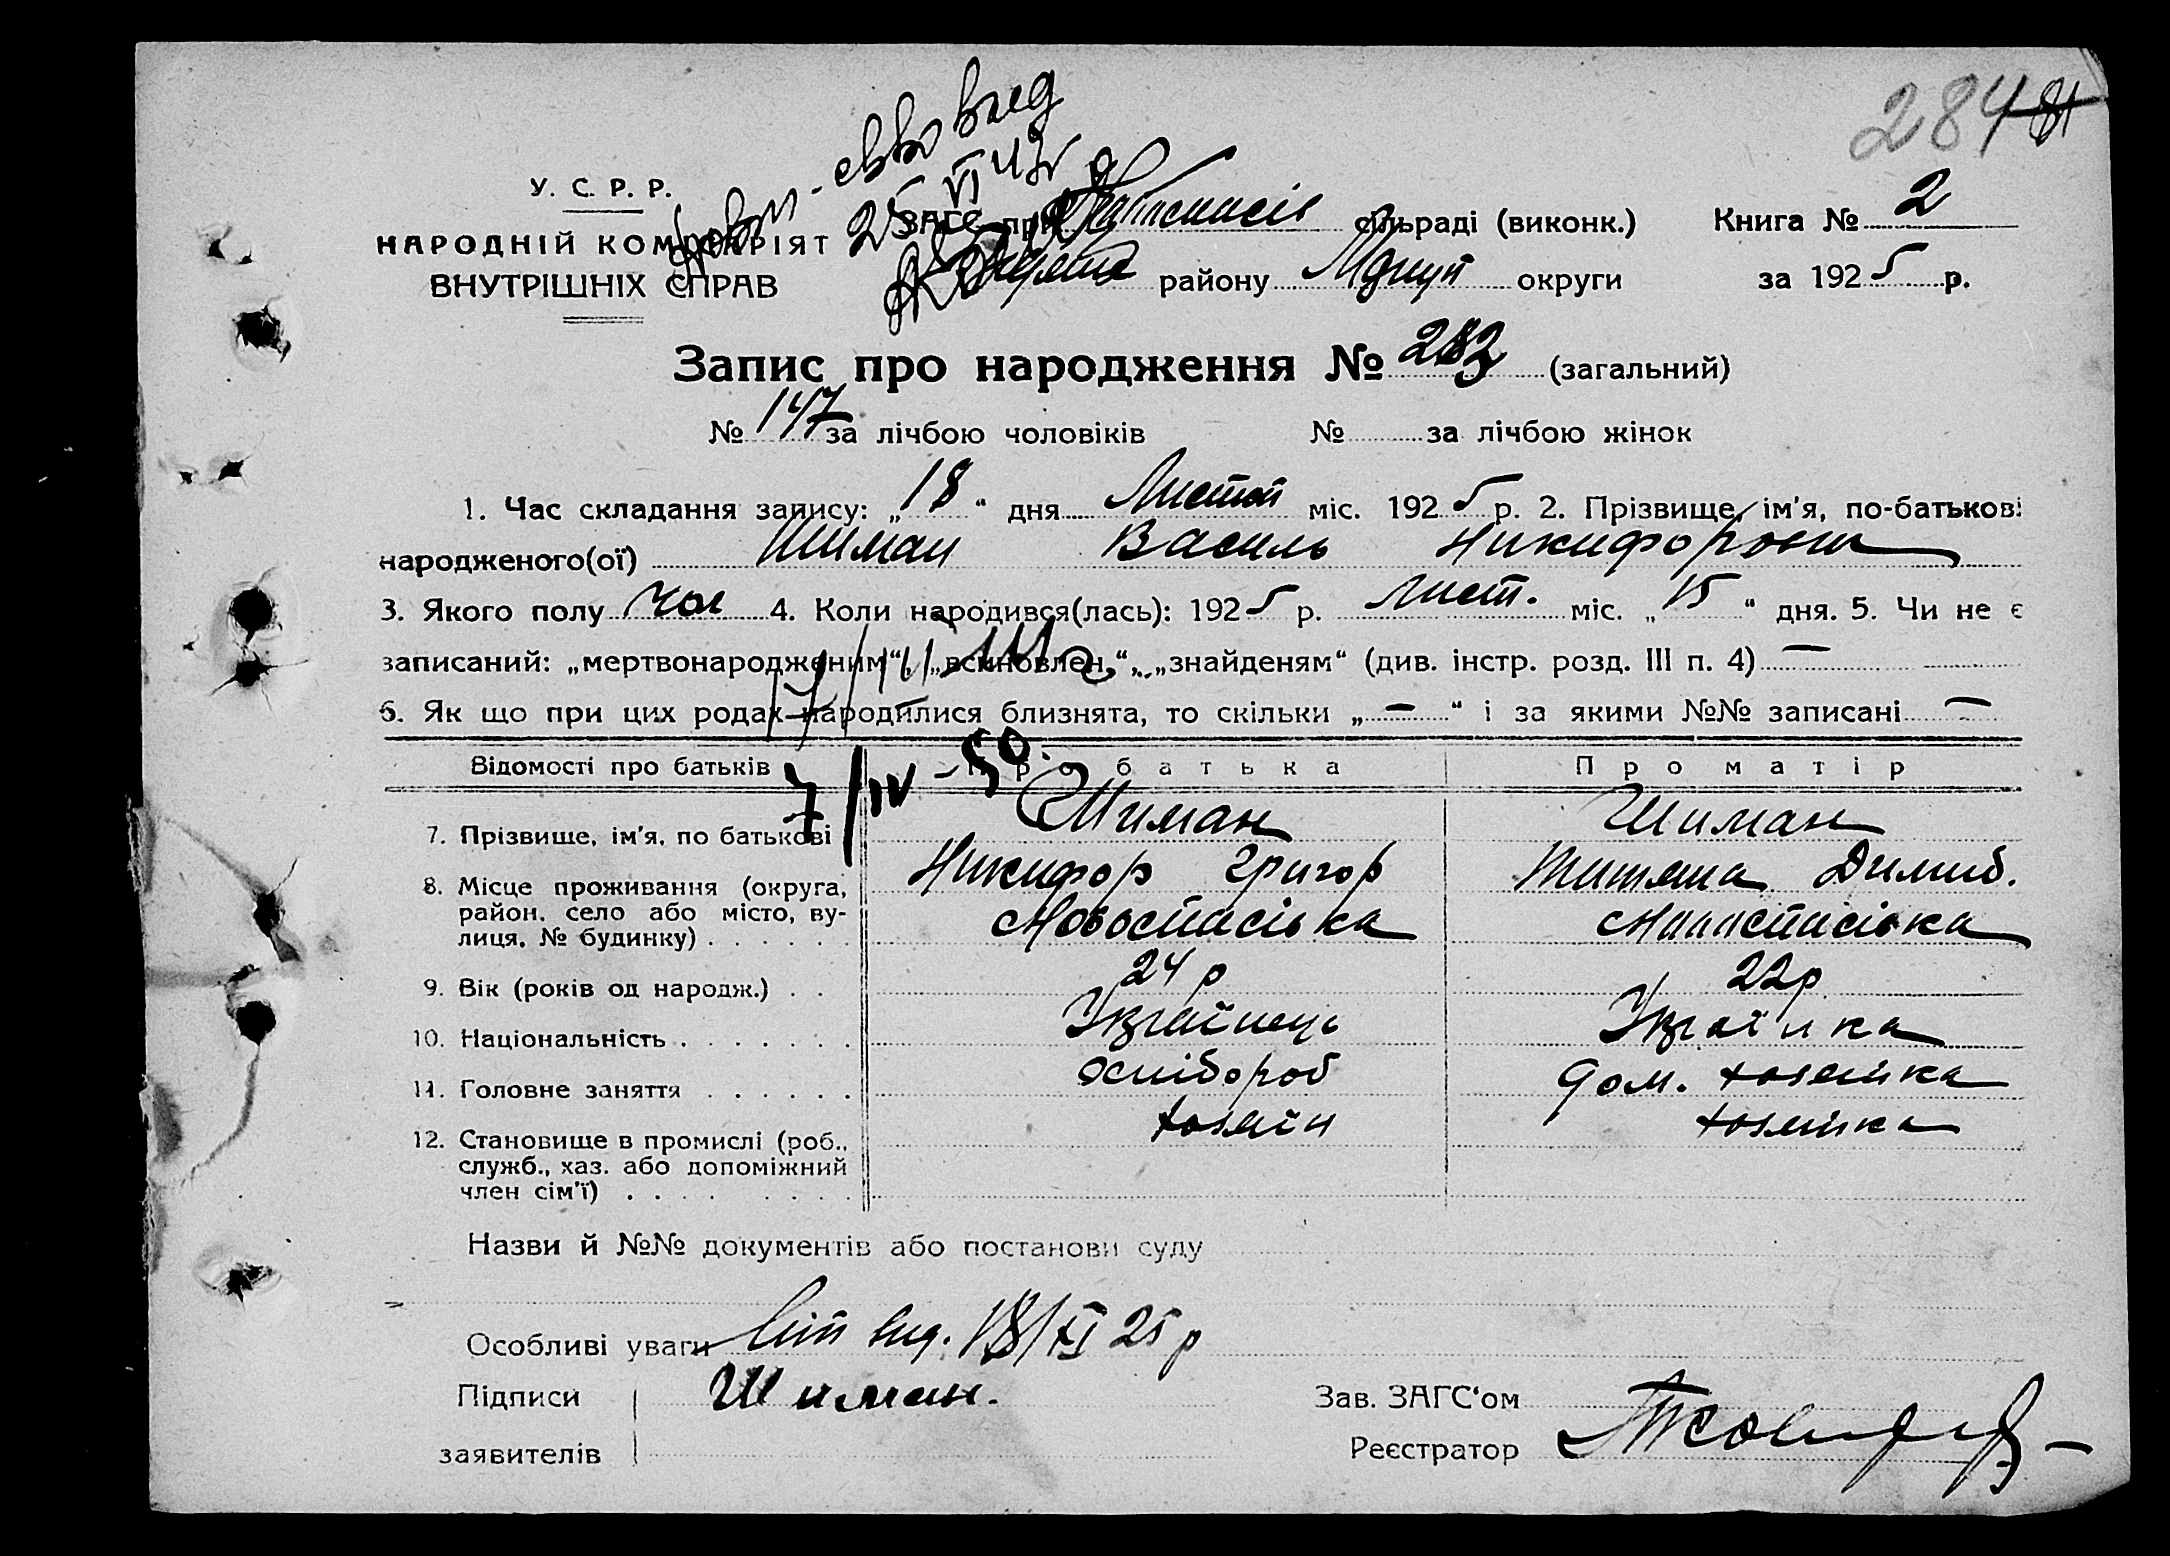 284 81
У. С. Р. Р.
НАРОДНІЙ КОМІСАРІЯТ
ВНУТРІШНІХ СПРАВ
ЗАГС при сільраді (виконк.) Книга № 2
району округи за 1925 р.
Запис про народження № 283 (загальний)
№ 147 за лічбою чоловіків № за лічбою жінок
1. Час складання запису: „18“ дня Листоп міс. 1925 р. 2. Прізвище, ім'я, по-батькові
народженого(ої) Шиман Василь Никифоров
3. Якого полу чол 4. Коли народився(лась): 1925 р. Лист. міс. „15“ дня. 5. Чи не є
записаний: „мертвонародженим“, „всиновлен.“, „знайденям“ (див. інстр. розд. III п. 4) —
6. Як що при цих родах народилися близнята, то скільки „—“ і за якими №№ записані —
Відомості про батьків Про батька Про матір
7/IV-50.
7. Прізвище, ім'я, по батькові Шиман Шиман
Никифор Григор Титяна Димид.
8. Місце проживання (округа,
район, село або місто, ву-
лиця, № будинку) Новоспасівка Новоспасівка
9. Вік (років од народж.) 24 р 22р
10. Національність Українець Українка
11. Головне заняття хлібороб дом. хозяйка
12. Становище в промислі (роб.,
служб., хаз. або допоміжний
член сім'ї) хозяїн хозяйка
Назви й №№ документів або постанови суду
Особливі уваги 18/XI 25 р
Підписи Шиман. Зав. ЗАГС'ом
заявителів Реєстратор